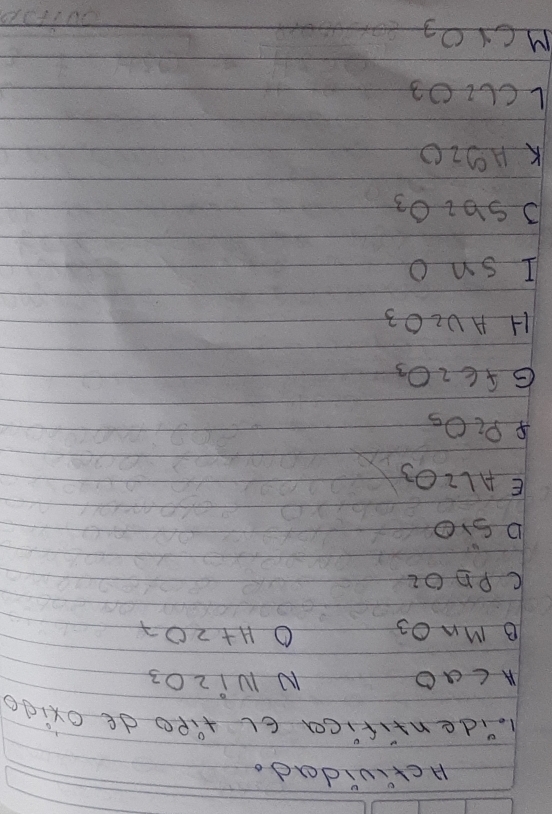 Actividad.
1. identifica el tipo de oxido
A CaO N Ni2O3
B MnO3 O H+2O7
C PbO2
D SrO
E Al2O3
F P2O5
G Fe2O3
H Au2O3
I SnO
J Sb2O3
K Ag2O
L Cl2O3
M CrO3